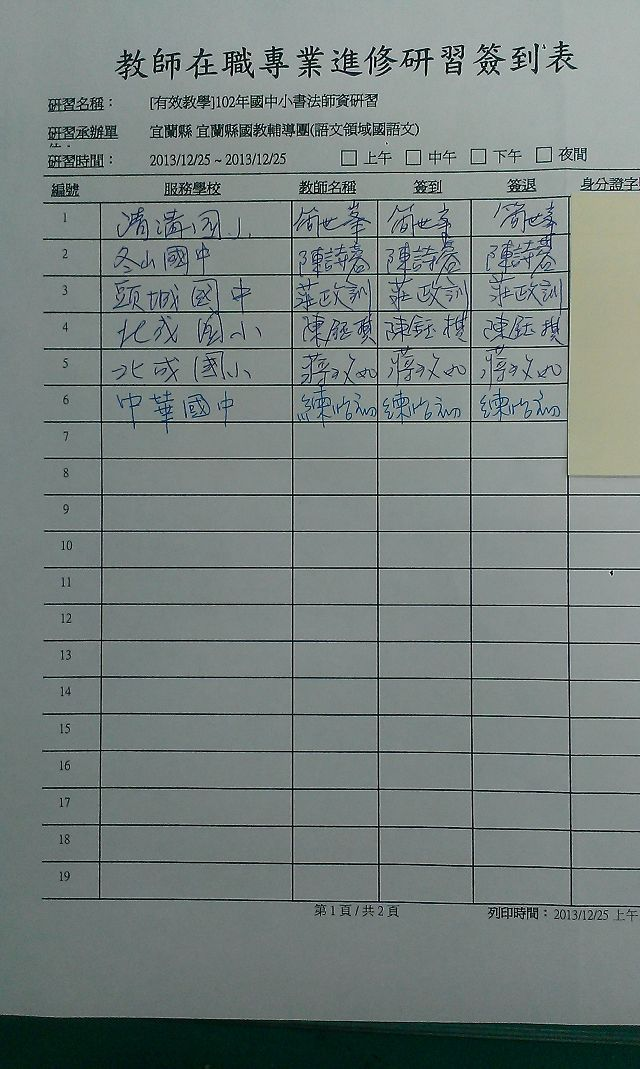 教師在職專業進修研習簽到表
研習名稱： [有效教學]102年國中小書法師資研習
研習承辦單 宜蘭縣 宜蘭縣國教輔導團(語文領域國語文)
研習時間： 2013/12/25 ~ 2013/12/25 □ 上午 □ 中午 □ 下午 □ 夜間
編號 服務學校 教師名稱 簽到 簽退 身分證字
1 清溝國小 簡世峯 簡世峯 簡世峯
2 冬山國中 陳詩蓉 陳詩蓉 陳詩蓉
3 頭城國中 莊政訓 莊政訓 莊政訓
4 北成國小 陳鈺祺 陳鈺祺 陳鈺祺
5 北成國小 蔣玫如 蔣玫如 蔣玫如
6 中華國中 練 練 練
7
8
9
10
11
12
13
14
15
16
17
18
19
第 1 頁 / 共 2 頁 列印時間： 2013/12/25 上午